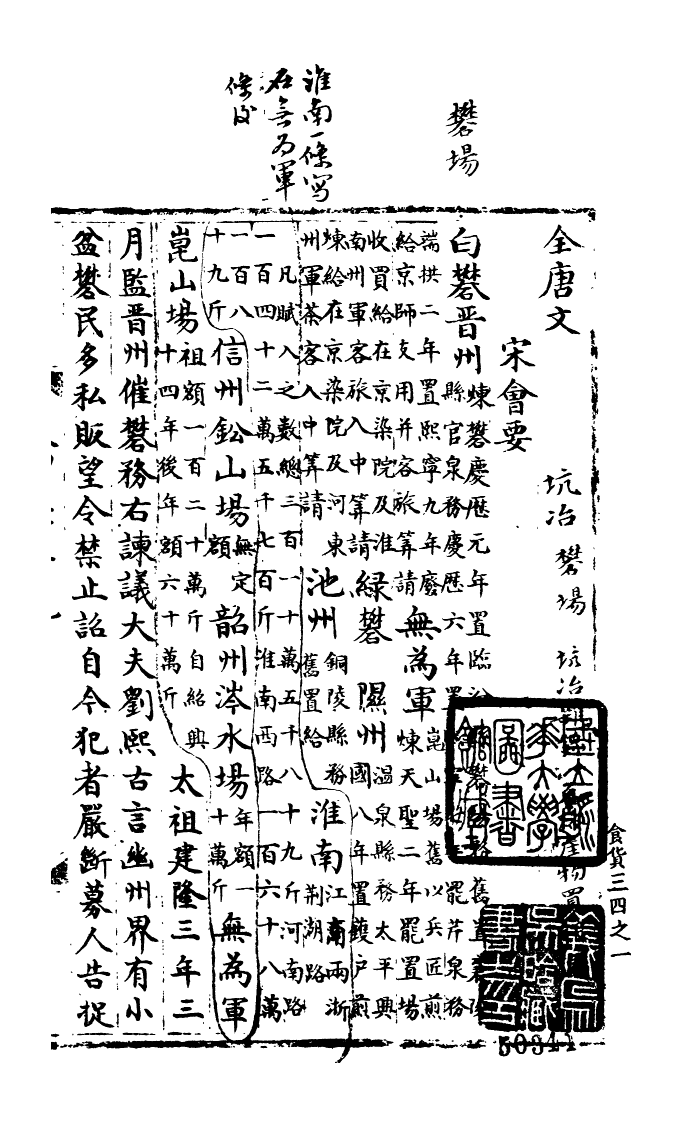 礬場
淮南一條写
在無为軍
條後
全唐文
宋會要
坑冶 礬場 坑冶
白礬晋州
煉礬慶歷元年置臨
縣官泉務慶歷六年置
罷芹泉務
端拱二年置熙寧九年廢
無為軍
崑山場舊以兵匠煎
煉天聖二年罷置場
給京師支用并客旅筭請
收買給在京染院及淮
南州軍客旅入中筭請
綠礬
隰州
温泉縣務太平興
國八年置鑊户煎
煉給在京染院及河東
州軍茶客入中筭請
池州
銅陵縣務
舊置給
淮南
江南兩浙
荆湖路
凡賦入之數總三百一十萬五千八十九斤河南路
一百四十二萬五千七百斤淮南西路一百六十八萬
一百八
十九斤
信州鈆山場
無定
額
韶州涔水場
年額一
十萬斤
無為軍
崑山場
祖額一百二十萬斤自紹興
十四年後年額六十萬斤
太祖建隆三年三
月監晋州催礬務右諫議大夫劉熙古言幽州界有小
盆礬民多私販望令禁止詔自今犯者嚴斷募人告捉
食貨三四之一